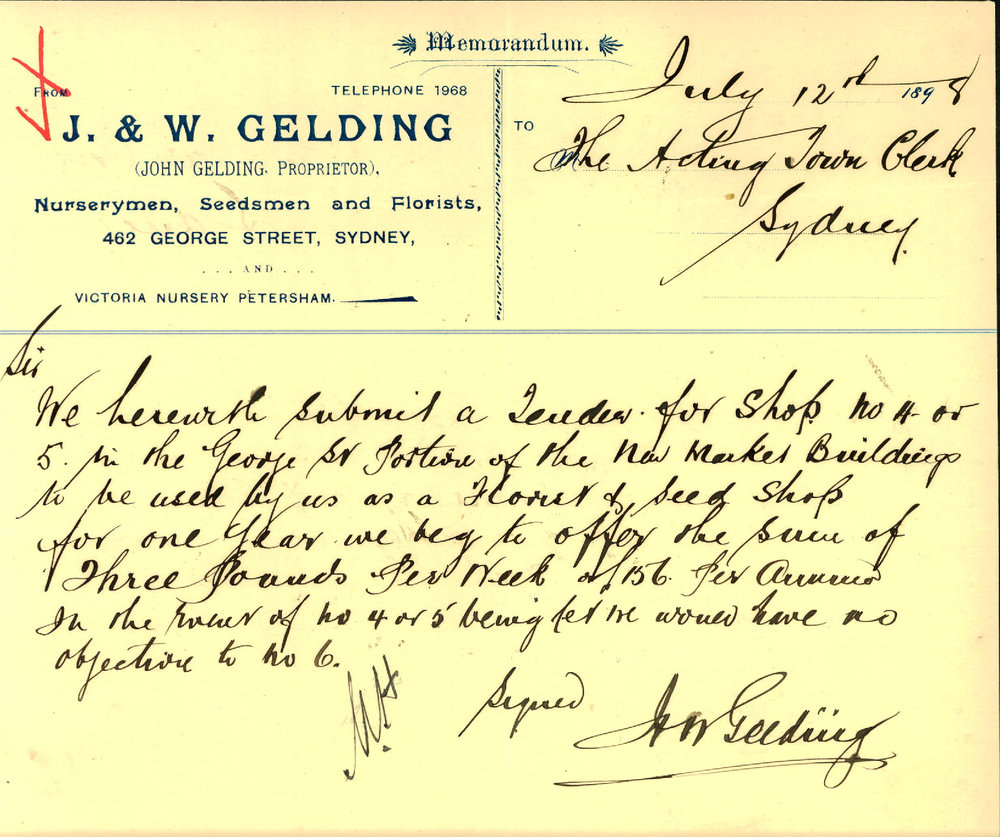 Memorandum.
FROM
TELEPHONE 1968
J. & W. GELDING
(JOHN GELDING, PROPRIETOR),
Nurserymen, Seedsmen and Florists,
462 GEORGE STREET, SYDNEY,
... AND ...
VICTORIA NURSERY PETERSHAM.
July 12th 1898
TO
The Acting Town Clerk
Sydney.
Sir
We herewith submit a Tender for Shop no 4 or
5. in the George St Portion of the New Market Buildings
to be used by us as a Florist & Seed Shop
for one Year we beg to offer the sum of
Three Pounds Per Week or £156. Per Annum
In the Event of no 4 or 5 being let we would have no
objection to no 6.
Signed
J & W Gelding